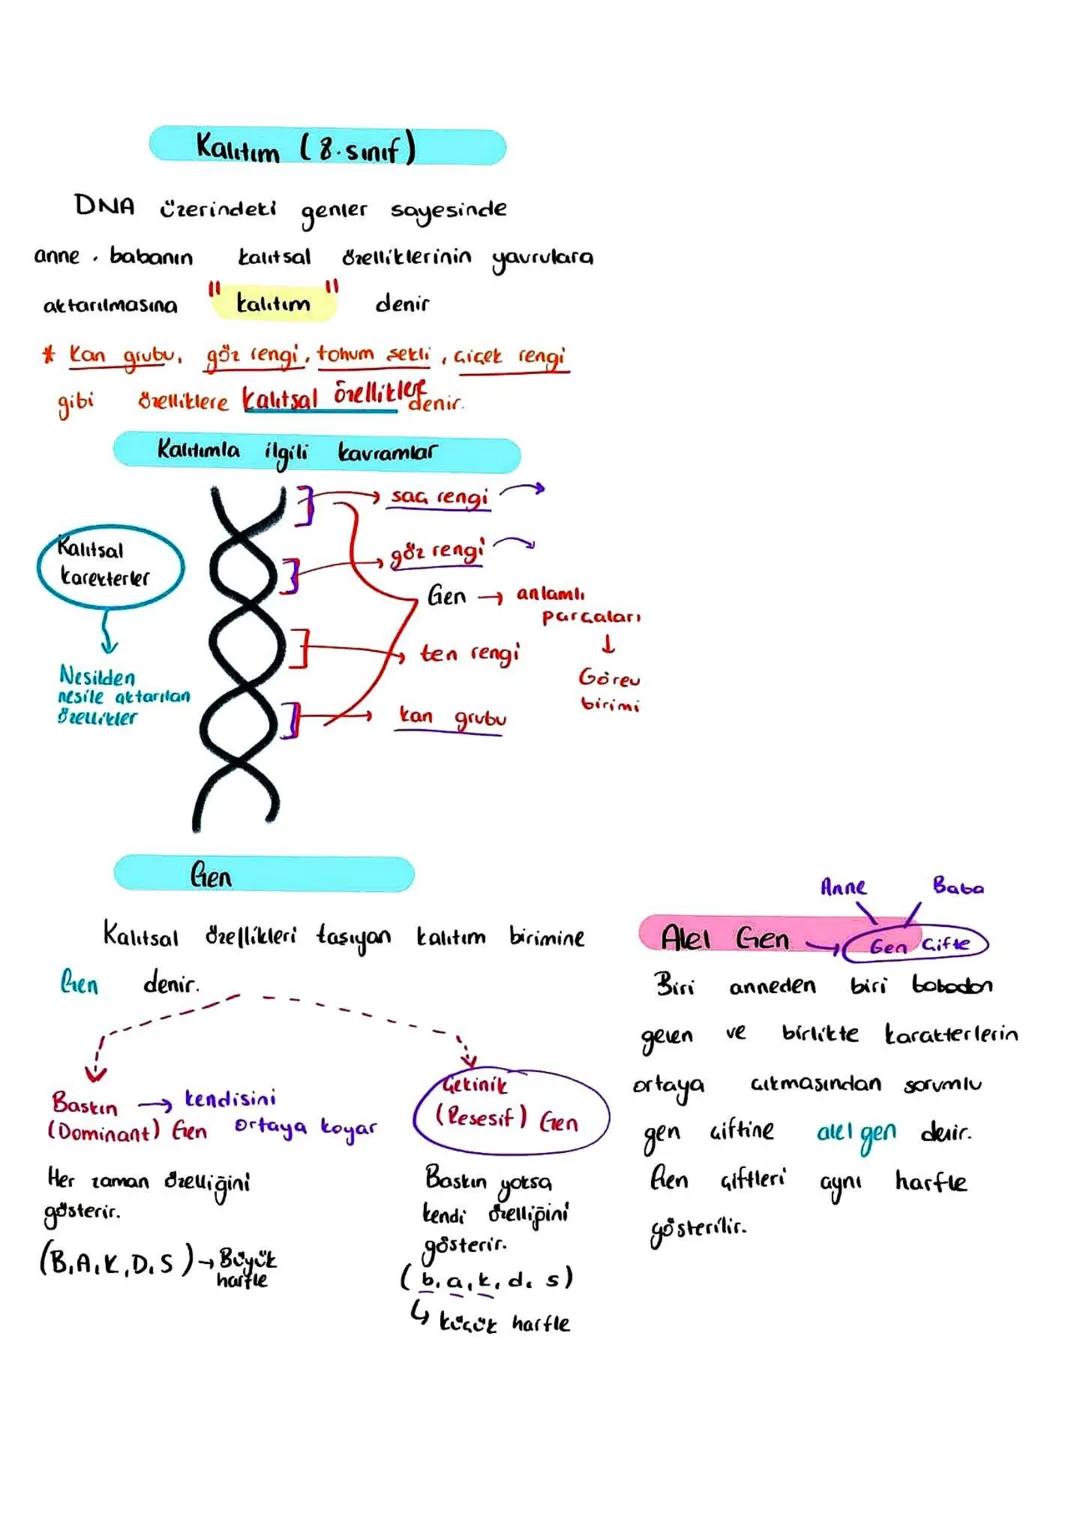 Kalıtım (8.sınıf)
DNA üzerindeki genler sayesinde
anne, babanın kalıtsal özelliklerinin yavrulara
aktarılmasına "kalıtım" denir
* Kan grubu, göz rengi, tohum şekli, çiçek rengi
gibi özelliklere kalıtsal özellikler denir.
Kalıtımla ilgili kavramlar
saç rengi
göz rengi
Kalıtsal
karekterler
Gen → anlamlı
parçaları
↓
Görev
birimi
ten rengi
Nesilden
nesile aktarılan
özellikler
kan grubu
Gen
Kalıtsal özellikleri taşıyan kalıtım birimine
Gen denir.
Baskın → kendisini
(Dominant) Gen ortaya koyar
Her zaman özelliğini
gösterir.
(B,A,K,D,S) → Büyük
harfle
Çekinik
(Resesif) Gen
Baskın yoksa
kendi özelliğini
gösterir.
(b,a,k,d,s)
↳ küçük harfle
Anne Baba
Alel Gen → Gen Çifte
Biri anneden biri babadan
gelen ve birlikte karakterlerin
ortaya çıkmasından sorumlu
gen çiftine alel gen denir.
Gen çiftleri aynı harfle
gösterilir.